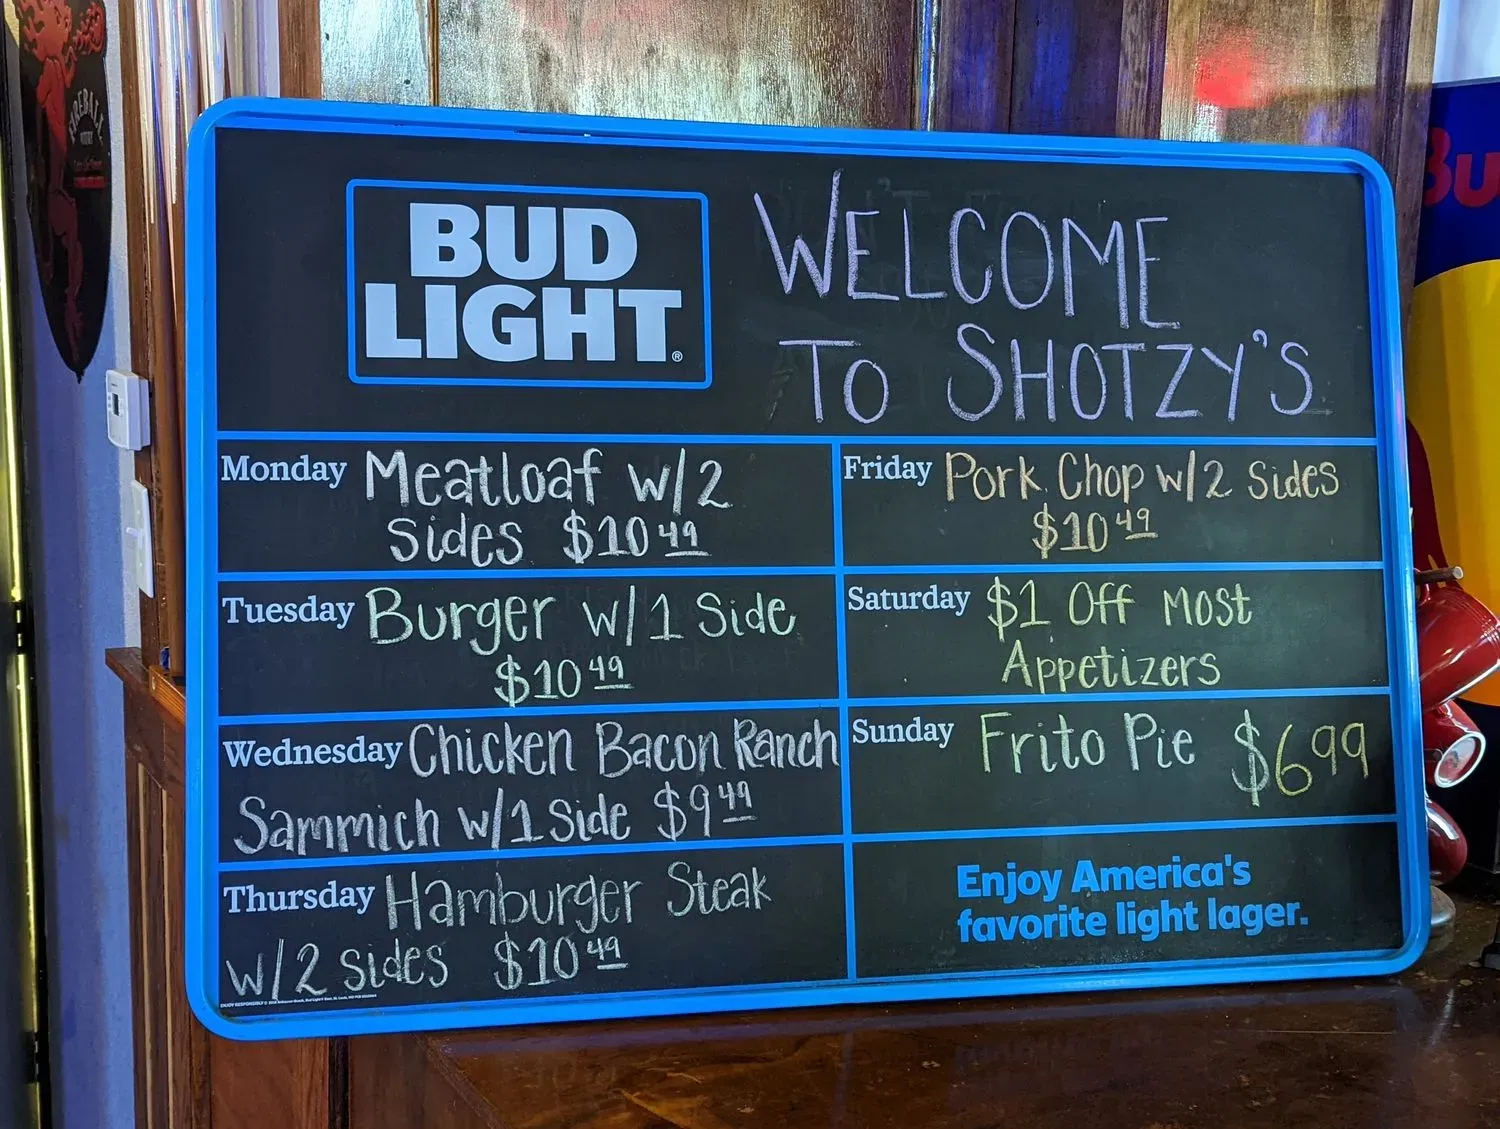 FIREBALL
Bu
BUD
LIGHT®
WELCOME
TO SHOTZY'S
Monday Meatloaf w/2
sides $10 49
Tuesday Burger w/1 Side
$10 49
Wednesday Chicken Bacon Ranch
Sammich w/1 Side $9 49
Thursday Hamburger Steak
w/2 sides $10 49
Friday Pork Chop w/2 Sides
$10 49
Saturday $1 Off Most
Appetizers
Sunday Frito Pie $6 99
Enjoy America's
favorite light lager.
ENJOY RESPONSIBLY